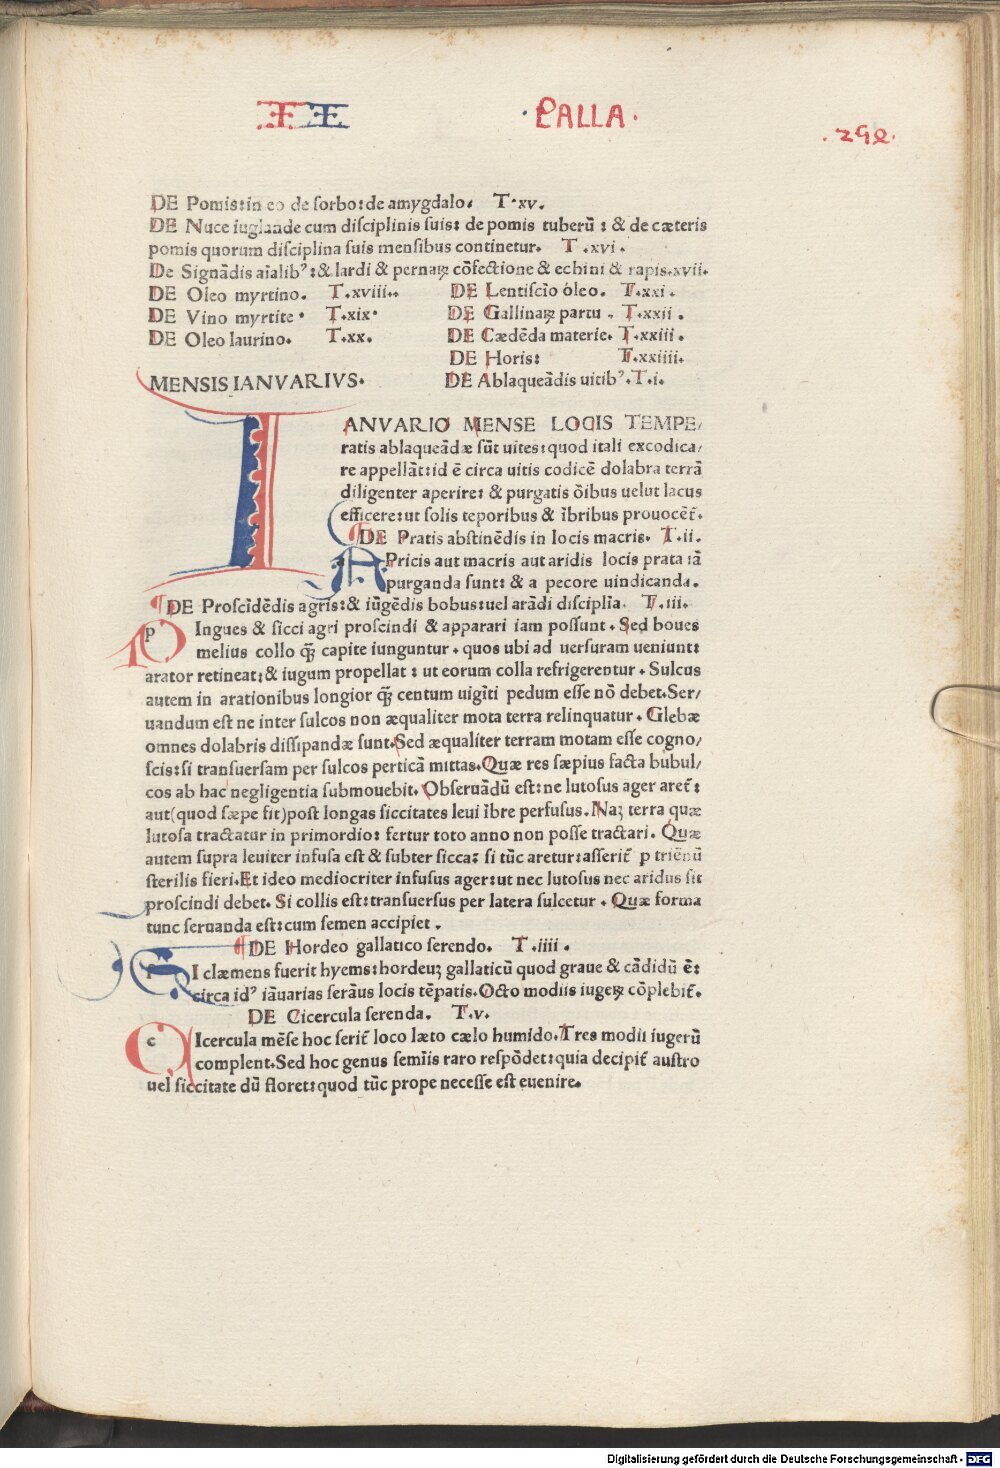 II · PALLA ·
. 292 .
DE Pomis: in eo de sorbo: de amygdalo. T.xv.
DE Nuce iuglande cum disciplinis suis: de pomis tuberũ : & de cæteris
pomis quorum disciplina suis mensibus continetur. T .xvi .
De Signãdis aĩalibꝰ: & lardi & pernaꝝ cõfectione & echini & rapis.xvii.
DE Oleo myrtino. T.xviii.. DE Lentiscĩo óleo. T.xxi .
DE Vino myrtite . T.xix. DE Gallinaꝝ partu . T.xxii .
DE Oleo laurino. T.xx. DE Cædẽda materie. T.xxiii .
DE Horis: T.xxiiii.
MENSIS IANVARIVS. DE Ablaqueãdis uitibꝰ.T.i.
IANVARIO MENSE LOCIS TEMPE/
ratis ablaqueãdæ sũt uites: quod itali excodica/
re appellãt: id ẽ circa uitis codicẽ dolabra terrã
diligenter aperire: & purgatis õibus uelut lacus
efficere: ut solis teporibus & ĩbribus prouocẽt̃.
DE Pratis abstinẽdis in locis macris. T.ii.
a APricis aut macris aut aridis locis prata iã
purganda sunt: & a pecore uindicanda.
DE Proscĩdẽdis agris: & iũgẽdis bobus: uel arãdi disciplĩa. T.iii.
p PIngues & sicci agri proscindi & apparari iam possunt . Sed boues
melius collo q̃ꝫ capite iunguntur . quos ubi ad uersuram ueniunt:
arator retineat: & iugum propellat : ut eorum colla refrigerentur . Sulcus
autem in arationibus longior q̃ꝫ centum uigĩti pedum esse nõ debet. Ser/
uandum est ne inter sulcos non æqualiter mota terra relinquatur . Glebæ
omnes dolabris dissipandæ sunt. Sed æqualiter terram motam esse cogno/
scis: si transuersam per sulcos perticã mittas. Quæ res sæpius facta bubul/
cos ab hac negligentia submouebit. Obseruãdũ est: ne lutosus ager aret̃:
aut(quod sæpe fit)post longas siccitates leui ĩbre perfusus. Naꝫ terra quæ
lutosa tractatur in primordio: fertur toto anno non posse tractari. Quæ
autem supra leuiter infusa est & subter sicca: si tũc aretur: asserit̃ p triẽnũ
sterilis fieri. Et ideo mediocriter infusus ager: ut nec lutosus nec aridus sit
proscindi debet. Si collis est: transuersus per latera sulcetur . Quæ forma
tunc seruanda est: cum semen accipiet .
DE Hordeo gallatico serendo. T .iiii .
s SI clæmens fuerit hyems: hordeuꝫ gallaticũ quod graue & cãdidũ ẽ:
circa idꝰ iãuarias serãus locis tẽpatis. Octo modiis iugeꝝ cõplebit̃.
DE Cicercula serenda. T.v.
c CIcercula mẽse hoc serit̃ loco læto cælo humido. Tres modii iugerũ
complent. Sed hoc genus semĩis raro respõdet: quia decipit̃ austro
uel siccitate dũ floret: quod tũc prope necesse est euenire.
Digitalisierung gefördert durch die Deutsche Forschungsgemeinschaft - DFG